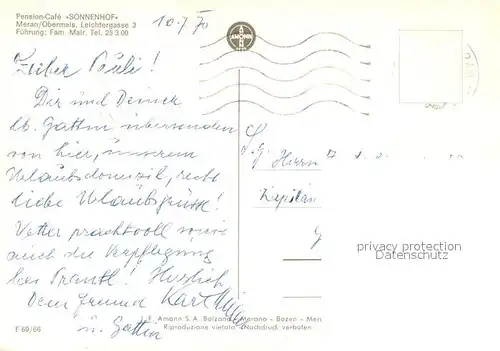 Pension-Café »SONNENHOF«
Meran/Obermais, Leichtergasse 3
Führung: Fam. Mair, Tel. 25 3 00
10.7.70
AMONN
Lieber Pauli!
Dir und Deiner
lb. Gattin übersenden
von hier, unserem
Urlaubsdomizil, recht
liebe Urlaubsgrüße!
Wetter prachtvoll sowie
auch die Verpflegung
bei Prantl! Herzlich
Dein Freund Karl
u. Gattin
S. g. Herrn
Kapitän
privacy protection
www.ansichtskarten-center.de
J. F. Amonn S. A. Bolzano - Merano - Bozen - Mer
Riproduzione vietata - Nachdruck verboten
F 69/66